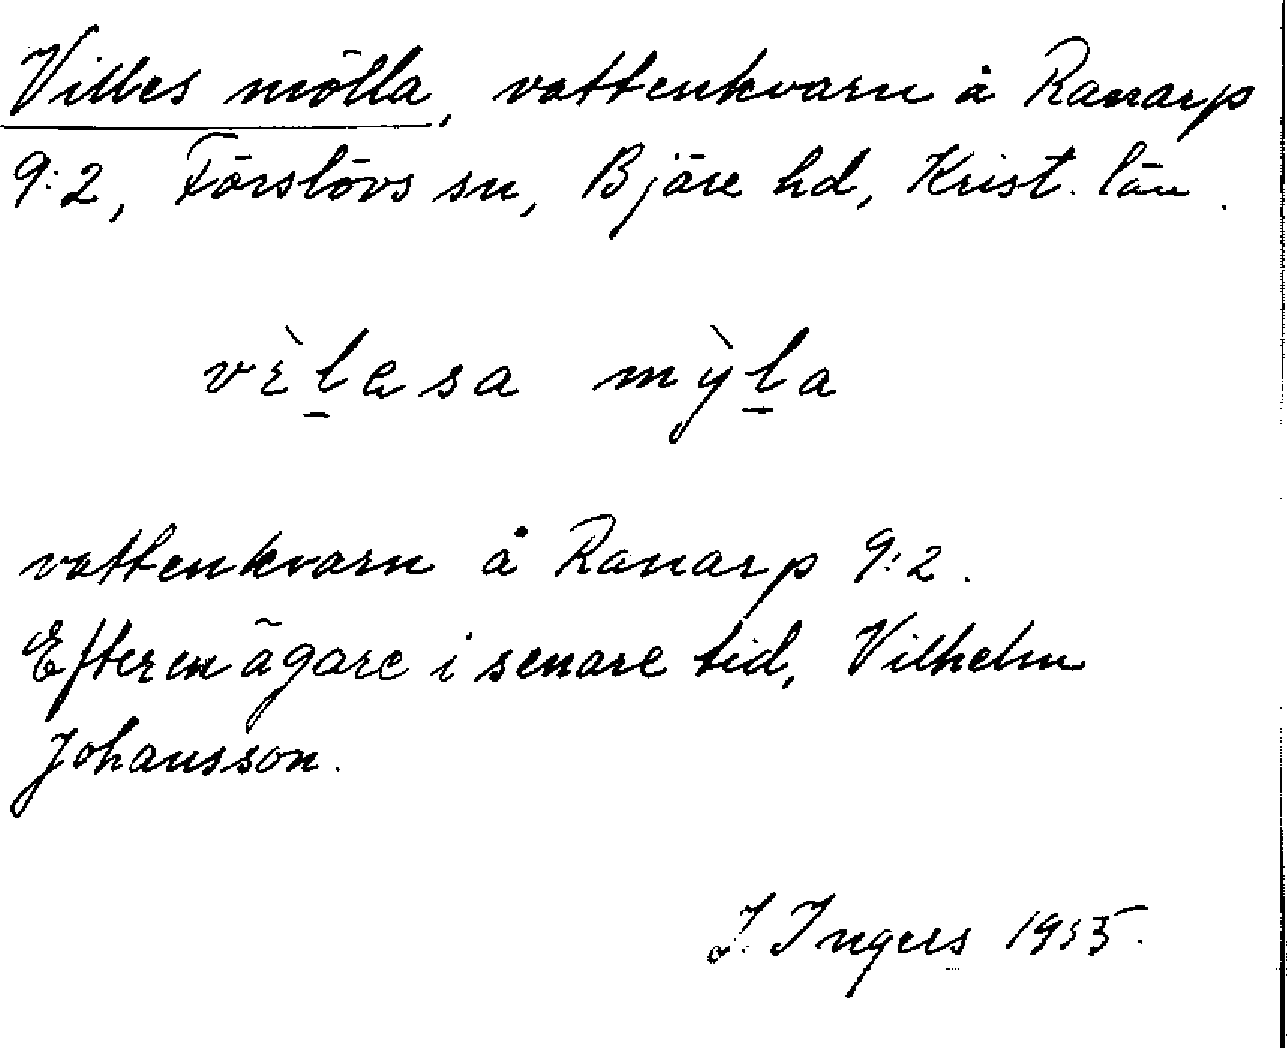 Villes mölla, vattenkvarn å Ranarp
9:2, Förslövs sn, Bjäre hd, Krist. län.
vɛ̀l̠asa mỳl̠a
vattenkvarn å Ranarp 9:2.
Efter en ägare i senare tid, Vilhelm
Johansson.
I. Ingers 1955.